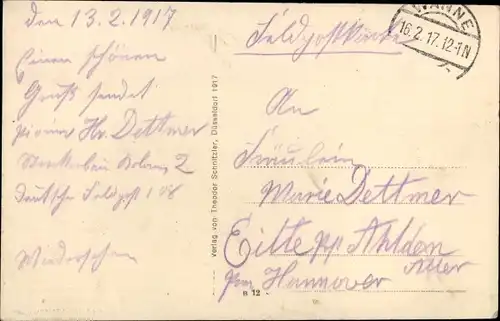 den 13.2.1917
Einen schönen
Gruß sendet
Hr. Dettmer
2
Deutsche Feldpost
Wiedersehen
Verlag von Theodor Schnitzler, Düsseldorf 1917
WANNE
16.2.17.12-1N
Feldpostkarte
An
Fräulein
Marie Dettmer
Eilte pp Ahlden
Aller
Hannover
B 12